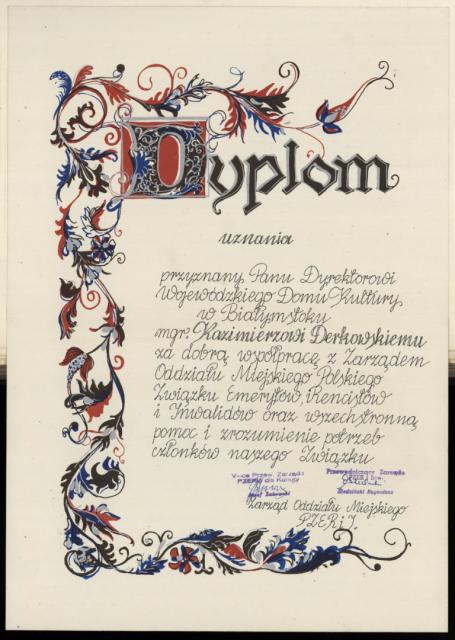 Dyplom
uznania
przyznany Panu Dyrektorowi
Wojewódzkiego Domu Kultury
w Białymstoku
mgr. Kazimierzowi Derkowskiemu
za dobrą współpracę z Zarządem
Oddziału Miejskiego Polskiego
Związku Emerytów, Rencistów
i Inwalidów oraz wszechstronną
pomoc i zrozumienie potrzeb
członków naszego Związku
V-ce Przew. Zarządu
PZERiI
Przewodniczący Zarządu
PZERiI
Zarząd Oddziału Miejskiego
P.Z.E.R.i I.